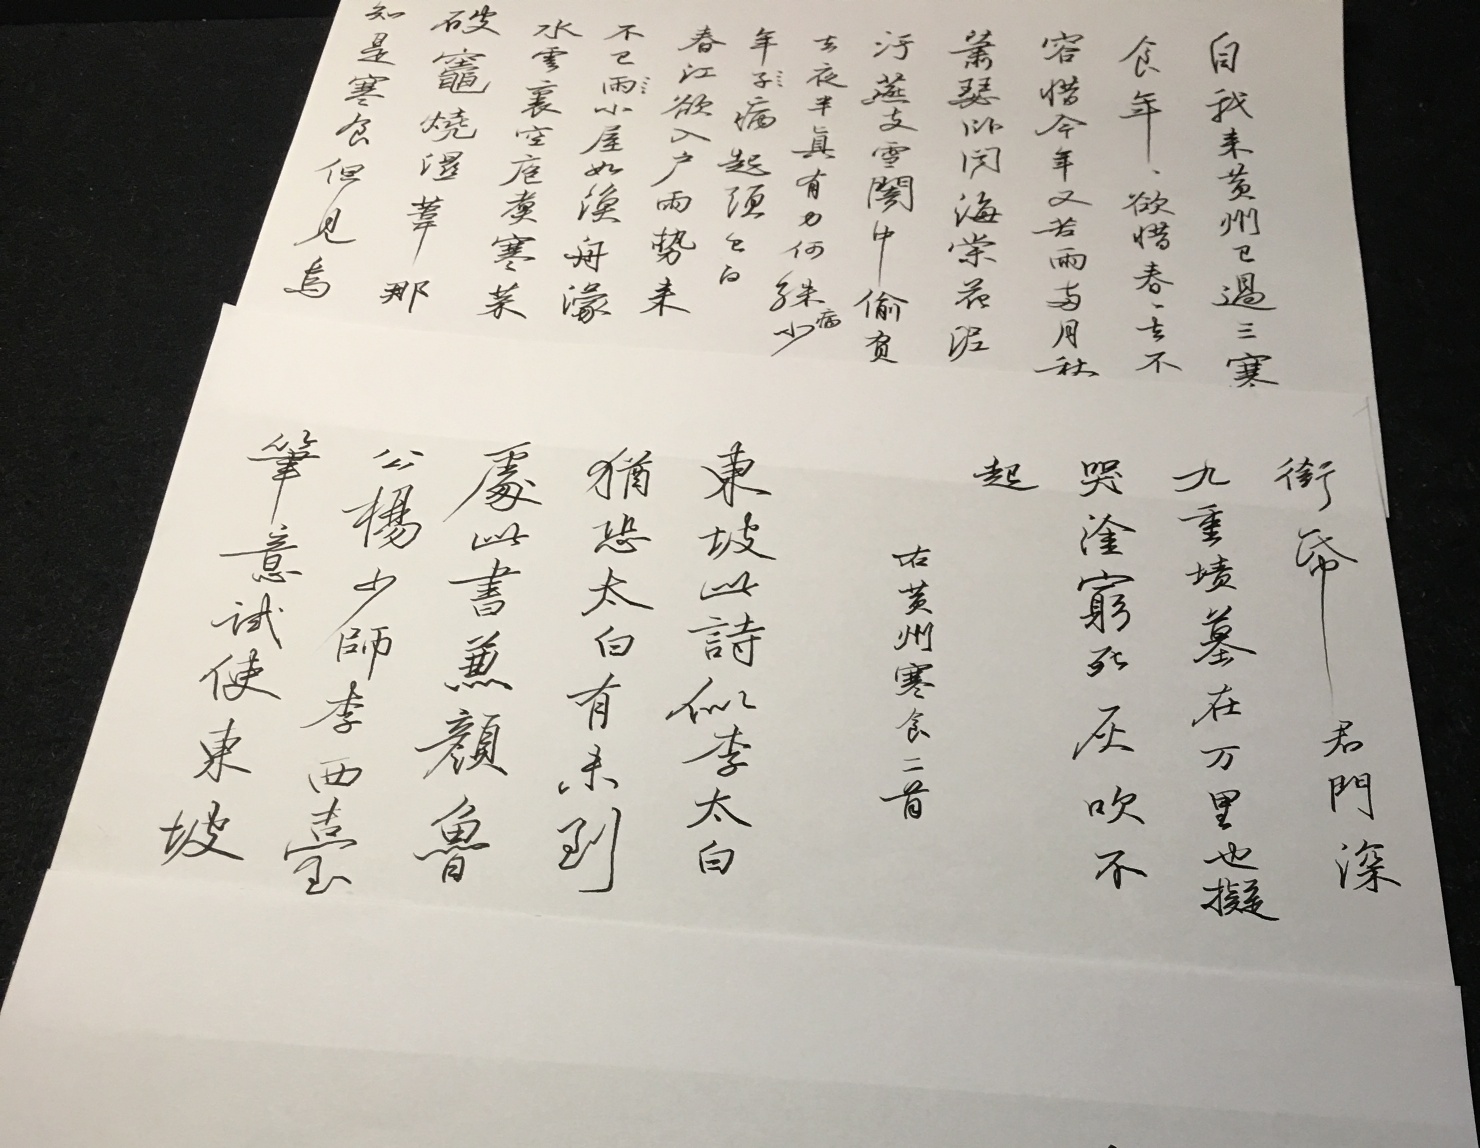 自我来黄州已過三寒
食年、欲惜春、去不
容惜今年又苦雨两月秋
萧瑟卧闻海棠花泥
汙燕支雪闇中偷負
去夜半真有力何殊少
病
年子〻病起頭已白
春江欲入户雨势来
不已雨〻小屋如漁舟濛
水雲裏空庖煮寒菜
破竈燒溼葦那
知是寒食但見烏
銜帋君門深
九重墳墓在万里也擬
哭塗窮死灰吹不
起
右黄州寒食二首
東坡此詩似李太白
猶恐太白有未到
處此書兼顏魯
公楊少師李西臺
筆意試使東坡